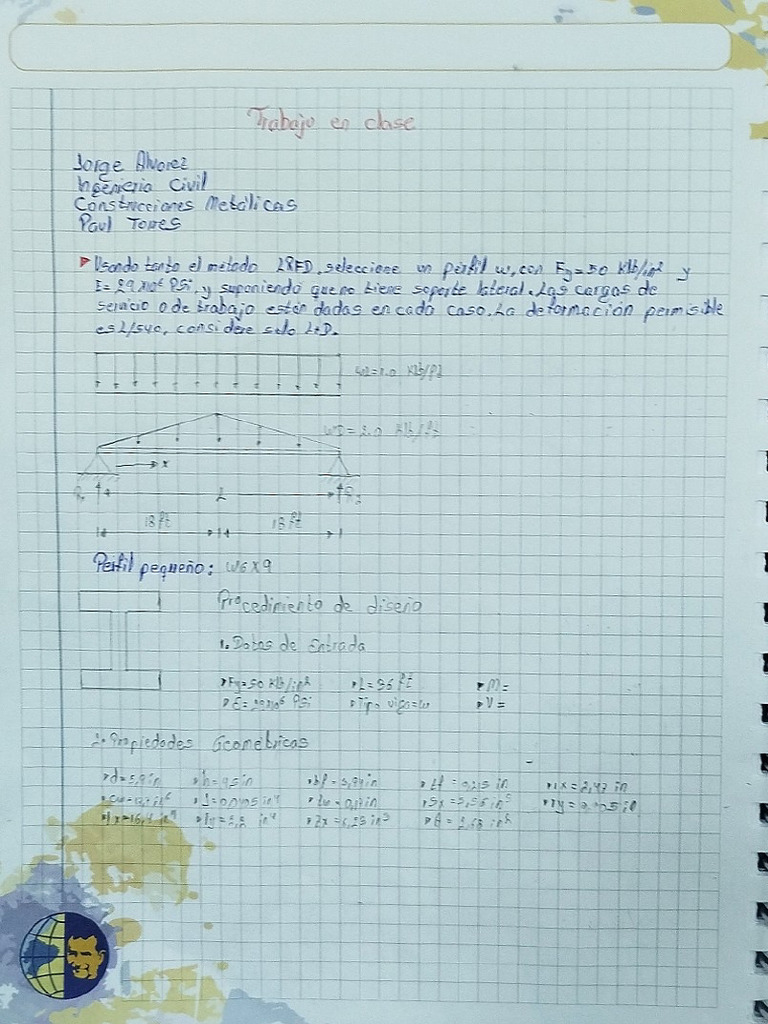 Trabajo en clase
Jorge Alvarez
Ingenieria Civil
Construcciones Metálicas
Paul Torres
Usando tanto el metodo LRFD, seleccione un perfil w, con Fy=50 klb/in² y
E=29x10⁶ PSi, y suponiendo que no tiene soporte lateral. Las cargas de
servicio o de trabajo están dadas en cada caso. La deformación permisible
es L/540, considere solo L+D.
klb/ft
WD=2.0 klb/ft
x
L
18 ft 18 ft
Perfil pequeño: W6x9
Procedimiento de diseño
1. Datos de Entrada
Fy=50 klb/in² L=36 ft M=
E=29x10⁶ PSi Tipo viga=w V=
2. Propiedades Geométricas
d=5,9in bf=3,94in tf=0,215 in
tw=0,17in Sx=5,56in³
Ix=16,4 in⁴ Zx=6,23in³ A=2,68 in²